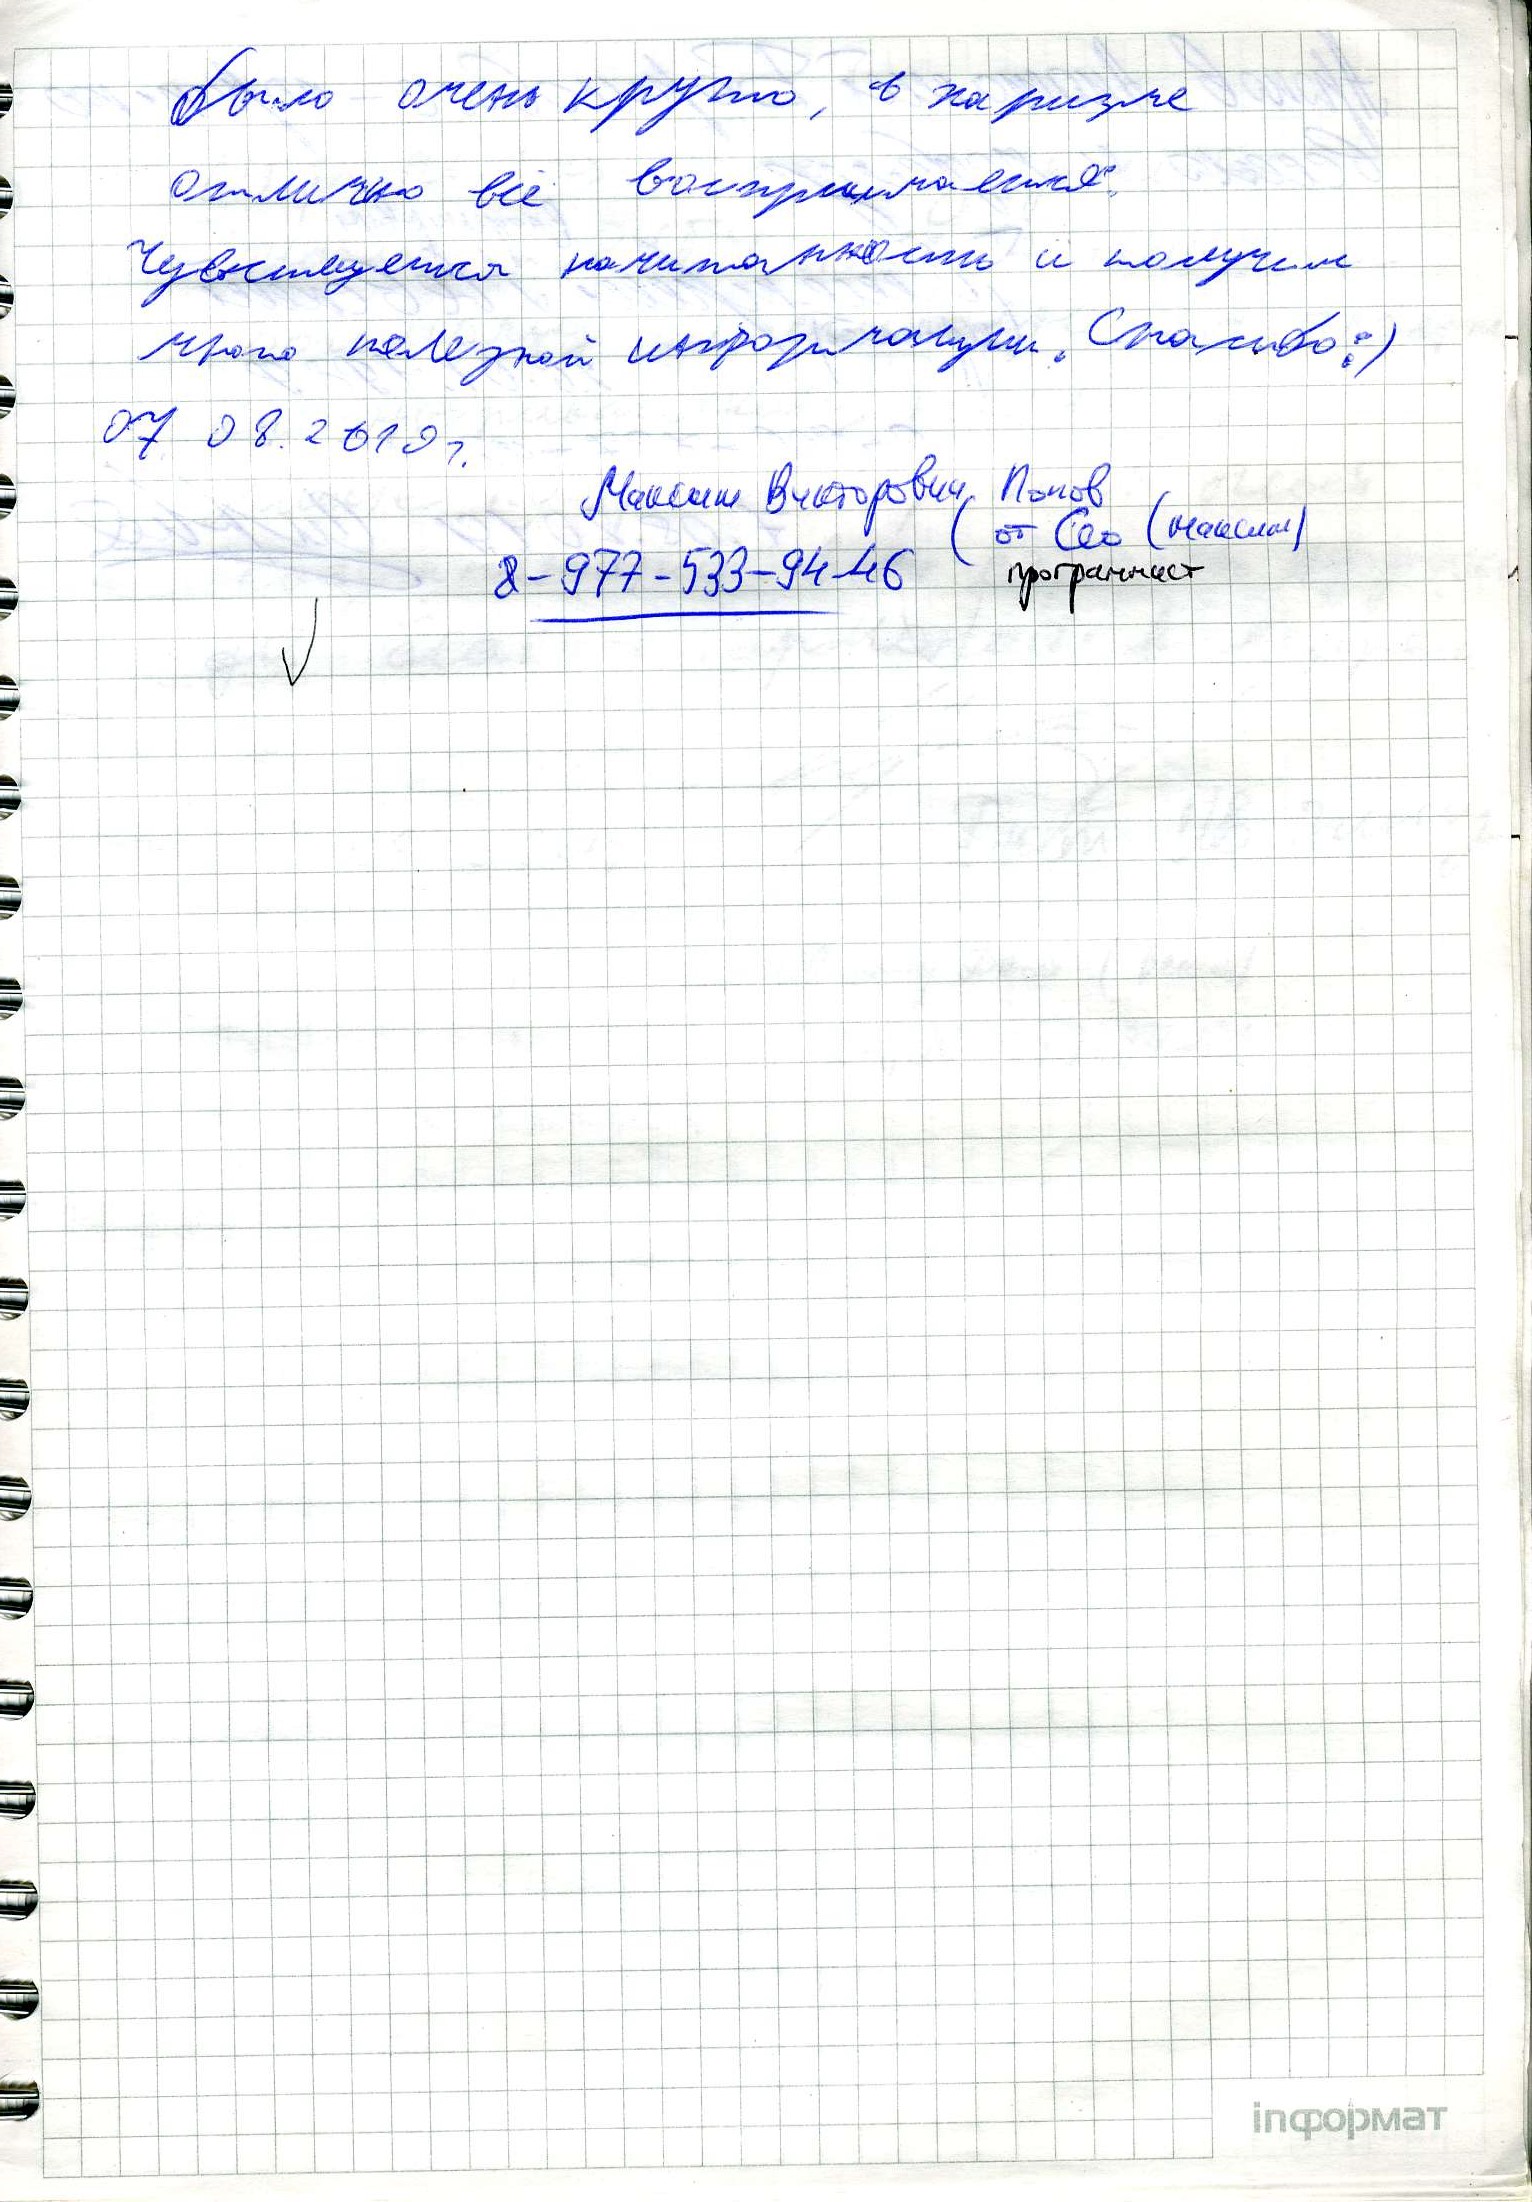 было очень круто, в харизме
отлично всё воспринимается.
Чувствуется начитанность и получил
много полезной информации. Спасибо :)
07 08.2019 г.
Максим Викторович Попов
(от Сео (Максим)
8-977-533-94-46
программист
inформат